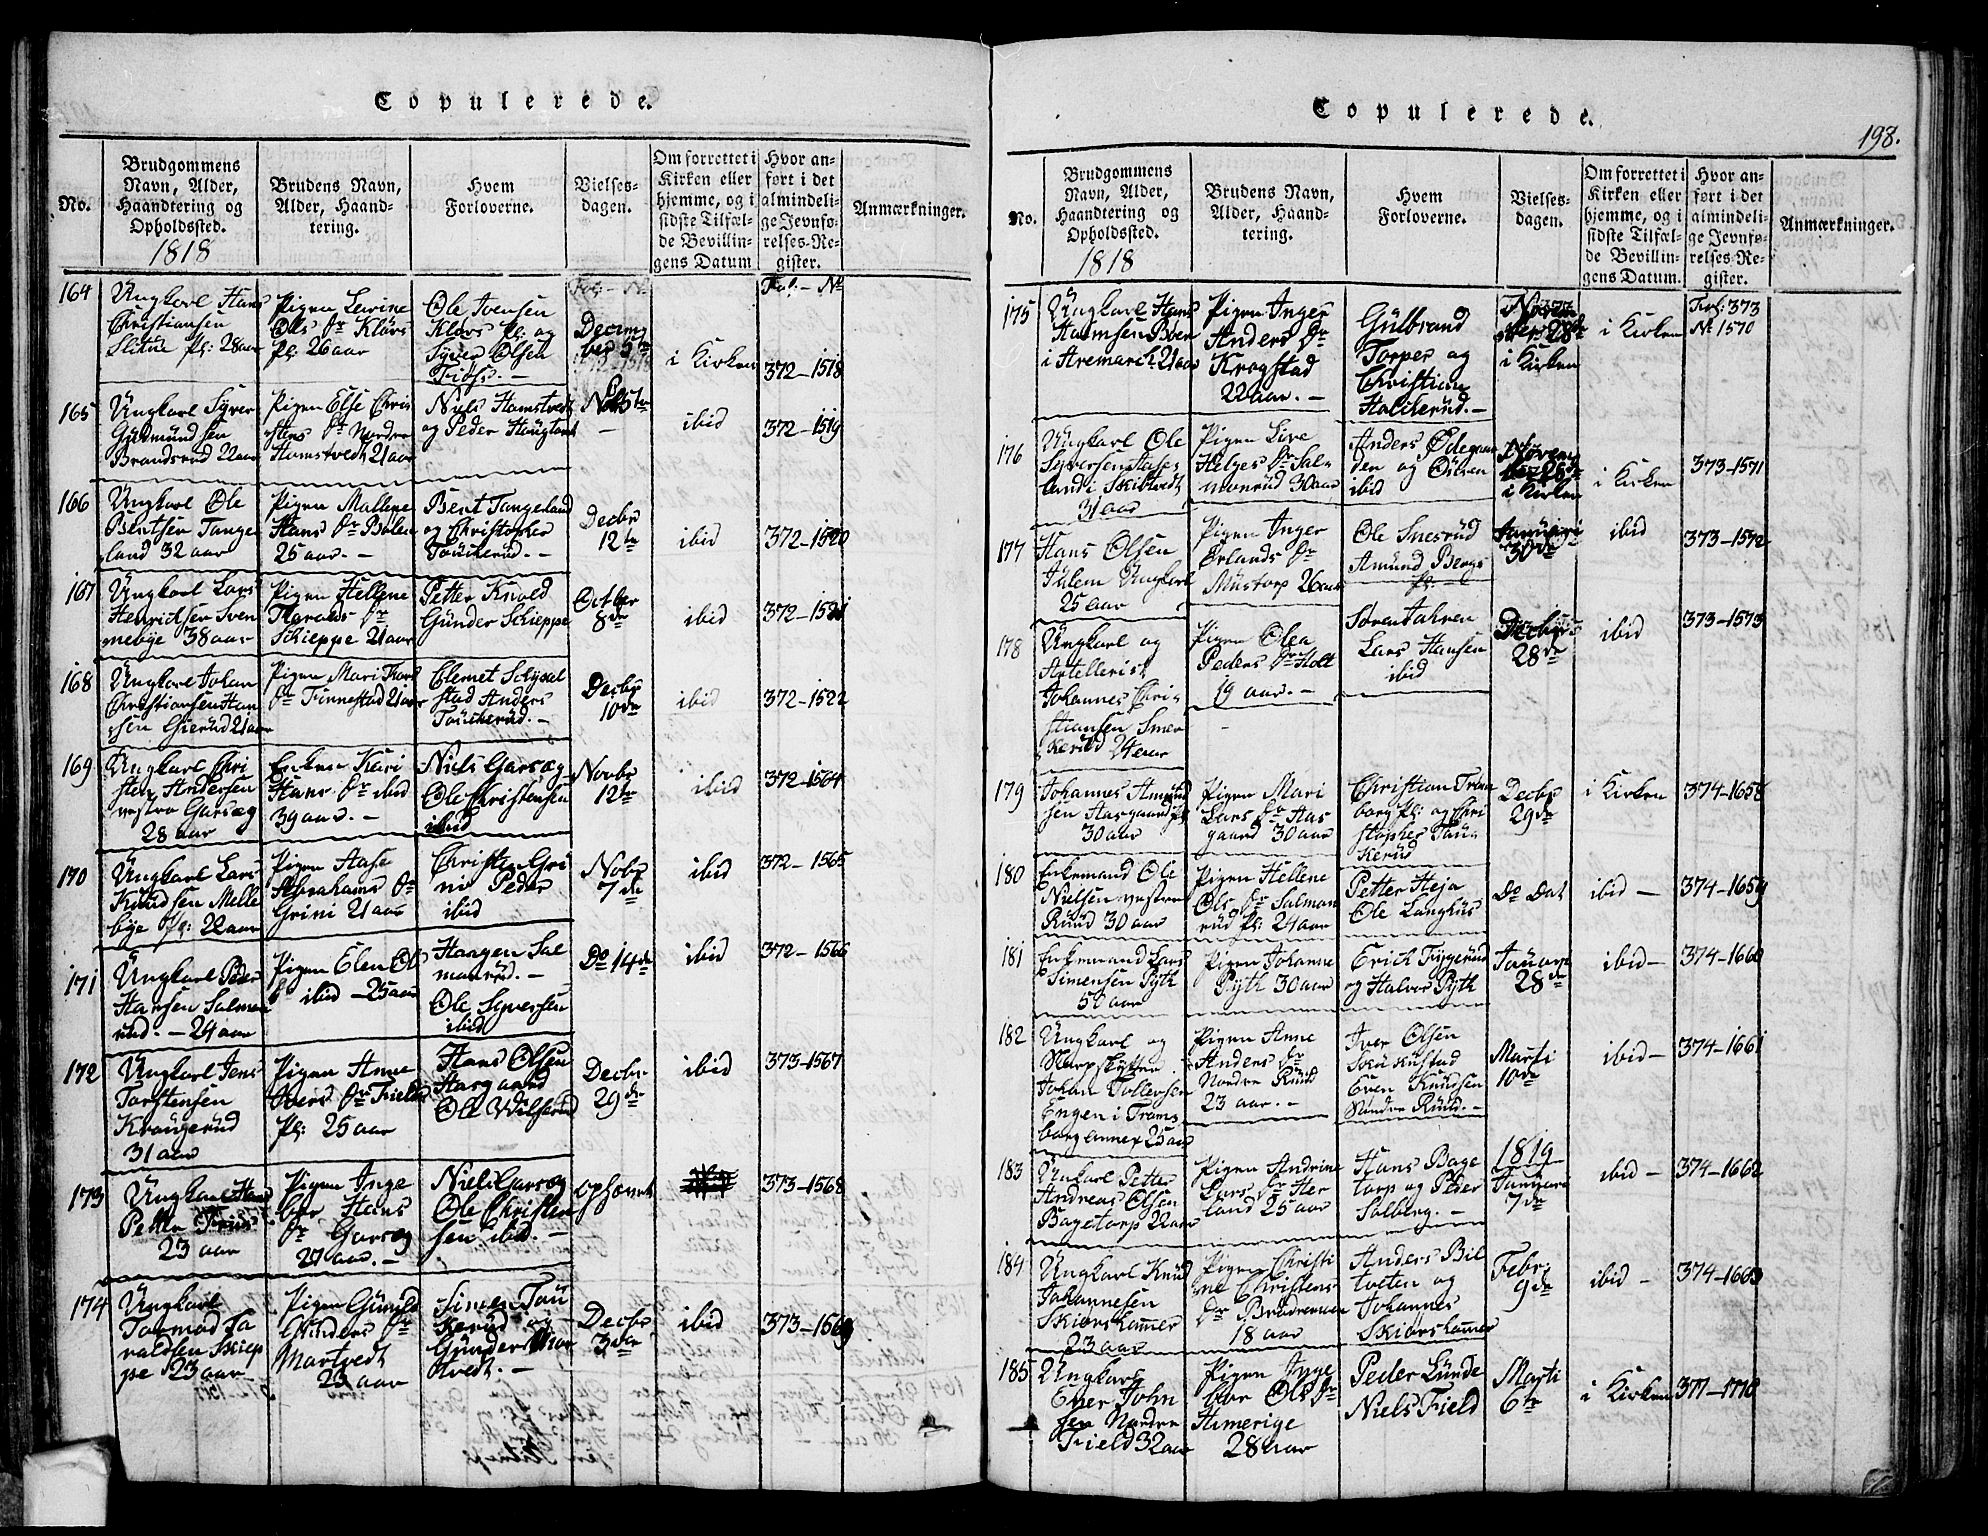 Copulerede.
No.
Brudgommens Navn, Alder, Haandtering og Opholdssted.
1818
Brudens Navn, Alder, Haandtering.
Hvem Forloverne.
Vielsesdagen.
Om forrettet i Kirken eller hjemme, og i sidste Tilfælde Bevillingens Datum
Hvor anført i det almindelige Jevnførelses-Register.
Anmærkninger.
Fol. – No
164
Ungkarl Hans
Christiansen
Slitue pl: 28 aar
Pigen Levine
Ols Dr Kløvs
pl. 26 aar
Ole Ivensen
Kløvs pl. og
Syver Olsen
i Kirken
372–1518
165
Ungkarl Syver
Gudmundsen
Brandsrud 22 aar
Pigen Else Chris
stens Dr Nordre
Hamstvedt 21 aar
Niels Hamstvedt
og Peder Haugland
ibid
372–1519
166
Ungkarl Ole
Bentsen Tange
land 32 aar
Pigen Mallene
Hans Dr Bølen
25 aar. –
Bent Tangeland
og Christopher
Touckerud. –
Decbr
12te
ibid
372–1520
167
Ungkarl Lars
Henrichsen Sven
nebye 38 aar
Pigen Hellene
Harolds Dr
Skieppe 21 aar
Petter Knold
Gunder Skieppe
Octbr
8de
ibid
372–1521
168
Ungkarl Johan
Christiansen Han
sen Gierud 21 aar
Pigen Mari
Dr Finnestad 21 aar
Clemet
stad Anders
Touckerud. –
Decbr
10de
ibid
372–1522
169
Ungkarl Chri
sten Andersen
vestre Garsæg
28 aar
Enken Kari
Hans Dr ibid
39 aar. –
Niels Garsæg
Ole Christensen
ibid
Novbr
12te
ibid
372–1564
170
Ungkarl Lars
Knudsen Melle
bye pl: 22 aar
Pigen Aase
Abrahams Dr
Grini 21 aar
Christen Gri
ni Peder
ibid
Nobr
7de
ibid
372–1565
171
Ungkarl Peder
Hansen Salmon
rud. – 24 aar
Pigen Elen Ols
ibid – 25 aar
Haagen Sal
monrud. –
Ole Syversen
ibid
Do 14de
ibid
372–1566
172
Ungkarl Jens
Torstensen
Kraugerud
31 aar
Pigen Anne
Ivers Dr Field
pl: 25 aar
Hans Olsen
Hargaard
Ole Wilserud
Decbr
29de
ibid
373–1567
173
Ungkarl Hans
Petter Friis
23 aar
Pigen Inge
bor Hans
Dr Garsæg
27 aar. –
Niels Garsæg
Ole Christen
sen ibid. –
ophævet
373–1568
174
Ungkarl
Tormod Ha
raldsen Skiep
pe 23 aar
Pigen Gunild
Gunders Dr
Mortvedt
23 aar
Simen Tou
kerud og
Gunder Mor
tvedt. –
Decbr
3die
ibid
373–1569
Copulerede.
198.
No.
Brudgommens Navn, Alder, Haandtering og Opholdssted.
1818
Brudens Navn, Alder, Haandtering.
Hvem Forloverne.
Vielsesdagen.
Om forrettet i Kirken eller hjemme, og i sidste Tilfælde Bevillingens Datum.
Hvor anført i det almindelige Jevnførelses-Register.
Anmærkninger.
175
Ungkarl Hans
Hansen Boen
i Aremarch 21 aar
Pigen Inger
Anders Dr
Kragstad
22 aar. –
Gulbrand
Torper og
Christian
Halckerud. –
28de
i Kirken
i Kirken
Fol: 373
No 1570
176
Ungkarl Ole
Syversen Aases
land i Skibtvedt
31 aar
Pigen Live
Helges Dr Sal-
monrud 30 aar
Anders Ødegaar
den og Østen
ibid
i Kirken
i Kirken
373–1571
177
Hans Olsen
Julem Ungkarl
25 aar
Pigen Inger
Erlands Dr
Mustorp 26 aar
Ole Snesrud
Amund Bergs
pl. –
Januari
30de
ibid
373–1572
178
Ungkarl og
Artellerist
Johannes Chri-
stiansen Smer
kerud 24 aar
Pigen Olea
Peders Dr Holt
19 aar. –
Soren Fahren
Lars Hansen
ibid
Decbr
28de
ibid
373–1573
179
Johannes Amund
sen Aasgaard pl
30 aar
Pigen Mari
Lars Dr Aas
gaard 30 aar
Christian Tram
borg pl: og Chri
stopher Tau-
kerud
Decbr
29de
i Kirken
374–1658
180
Enkemand Ole
Nielsen vestre
Ruud 30 aar
Pigen Hellene
Ols Dr Salman
rud pl: 24 aar
Petter Heja
Ole Langhus
Do Dat
ibid –
374–1659
181
Enkemand Lars
Simensen Pyth
50 aar
Pigen Johanne
Pyth 30 aar
Erich Tiggerud
og Halvor Pyth
Januar
28de
ibid –
374–1660
182
Ungkarl og
Johan Tollersen
Engen i Trøms
borg annex 25 aar
Pigen Anne
Anders Dr
Nordre Ruud
23 aar. –
Iver Olsen
Even Knudsen
Nordre Ruud. –
Marti
10de
ibid –
374–1661
183
Ungkarl Petter
Andreas Olsen
Bagetorp 22 aar
Pigen Andrine
Lars Dr Her
land 25 aar
Hans Bage
torp og Peder
Solberg. –
1819
Januari
7de
ibid –
374–1662
184
Ungkarl Knud
Johannesen
Skiørshammer
23 aar
Pigen Christi
ne Christens
18 aar
Anders Bil
tveten og
Johannes
Skiørshammer
Febr.
9de
ibid –
374–1663
185
Ungkarl
Ener John
sen Nordre
Field 32 aar
Pigen Inge
bor Ols Dr
Himerige
28 aar
Peder Lunde
Niels Field
Marti
6te
i Kirken
377–1776